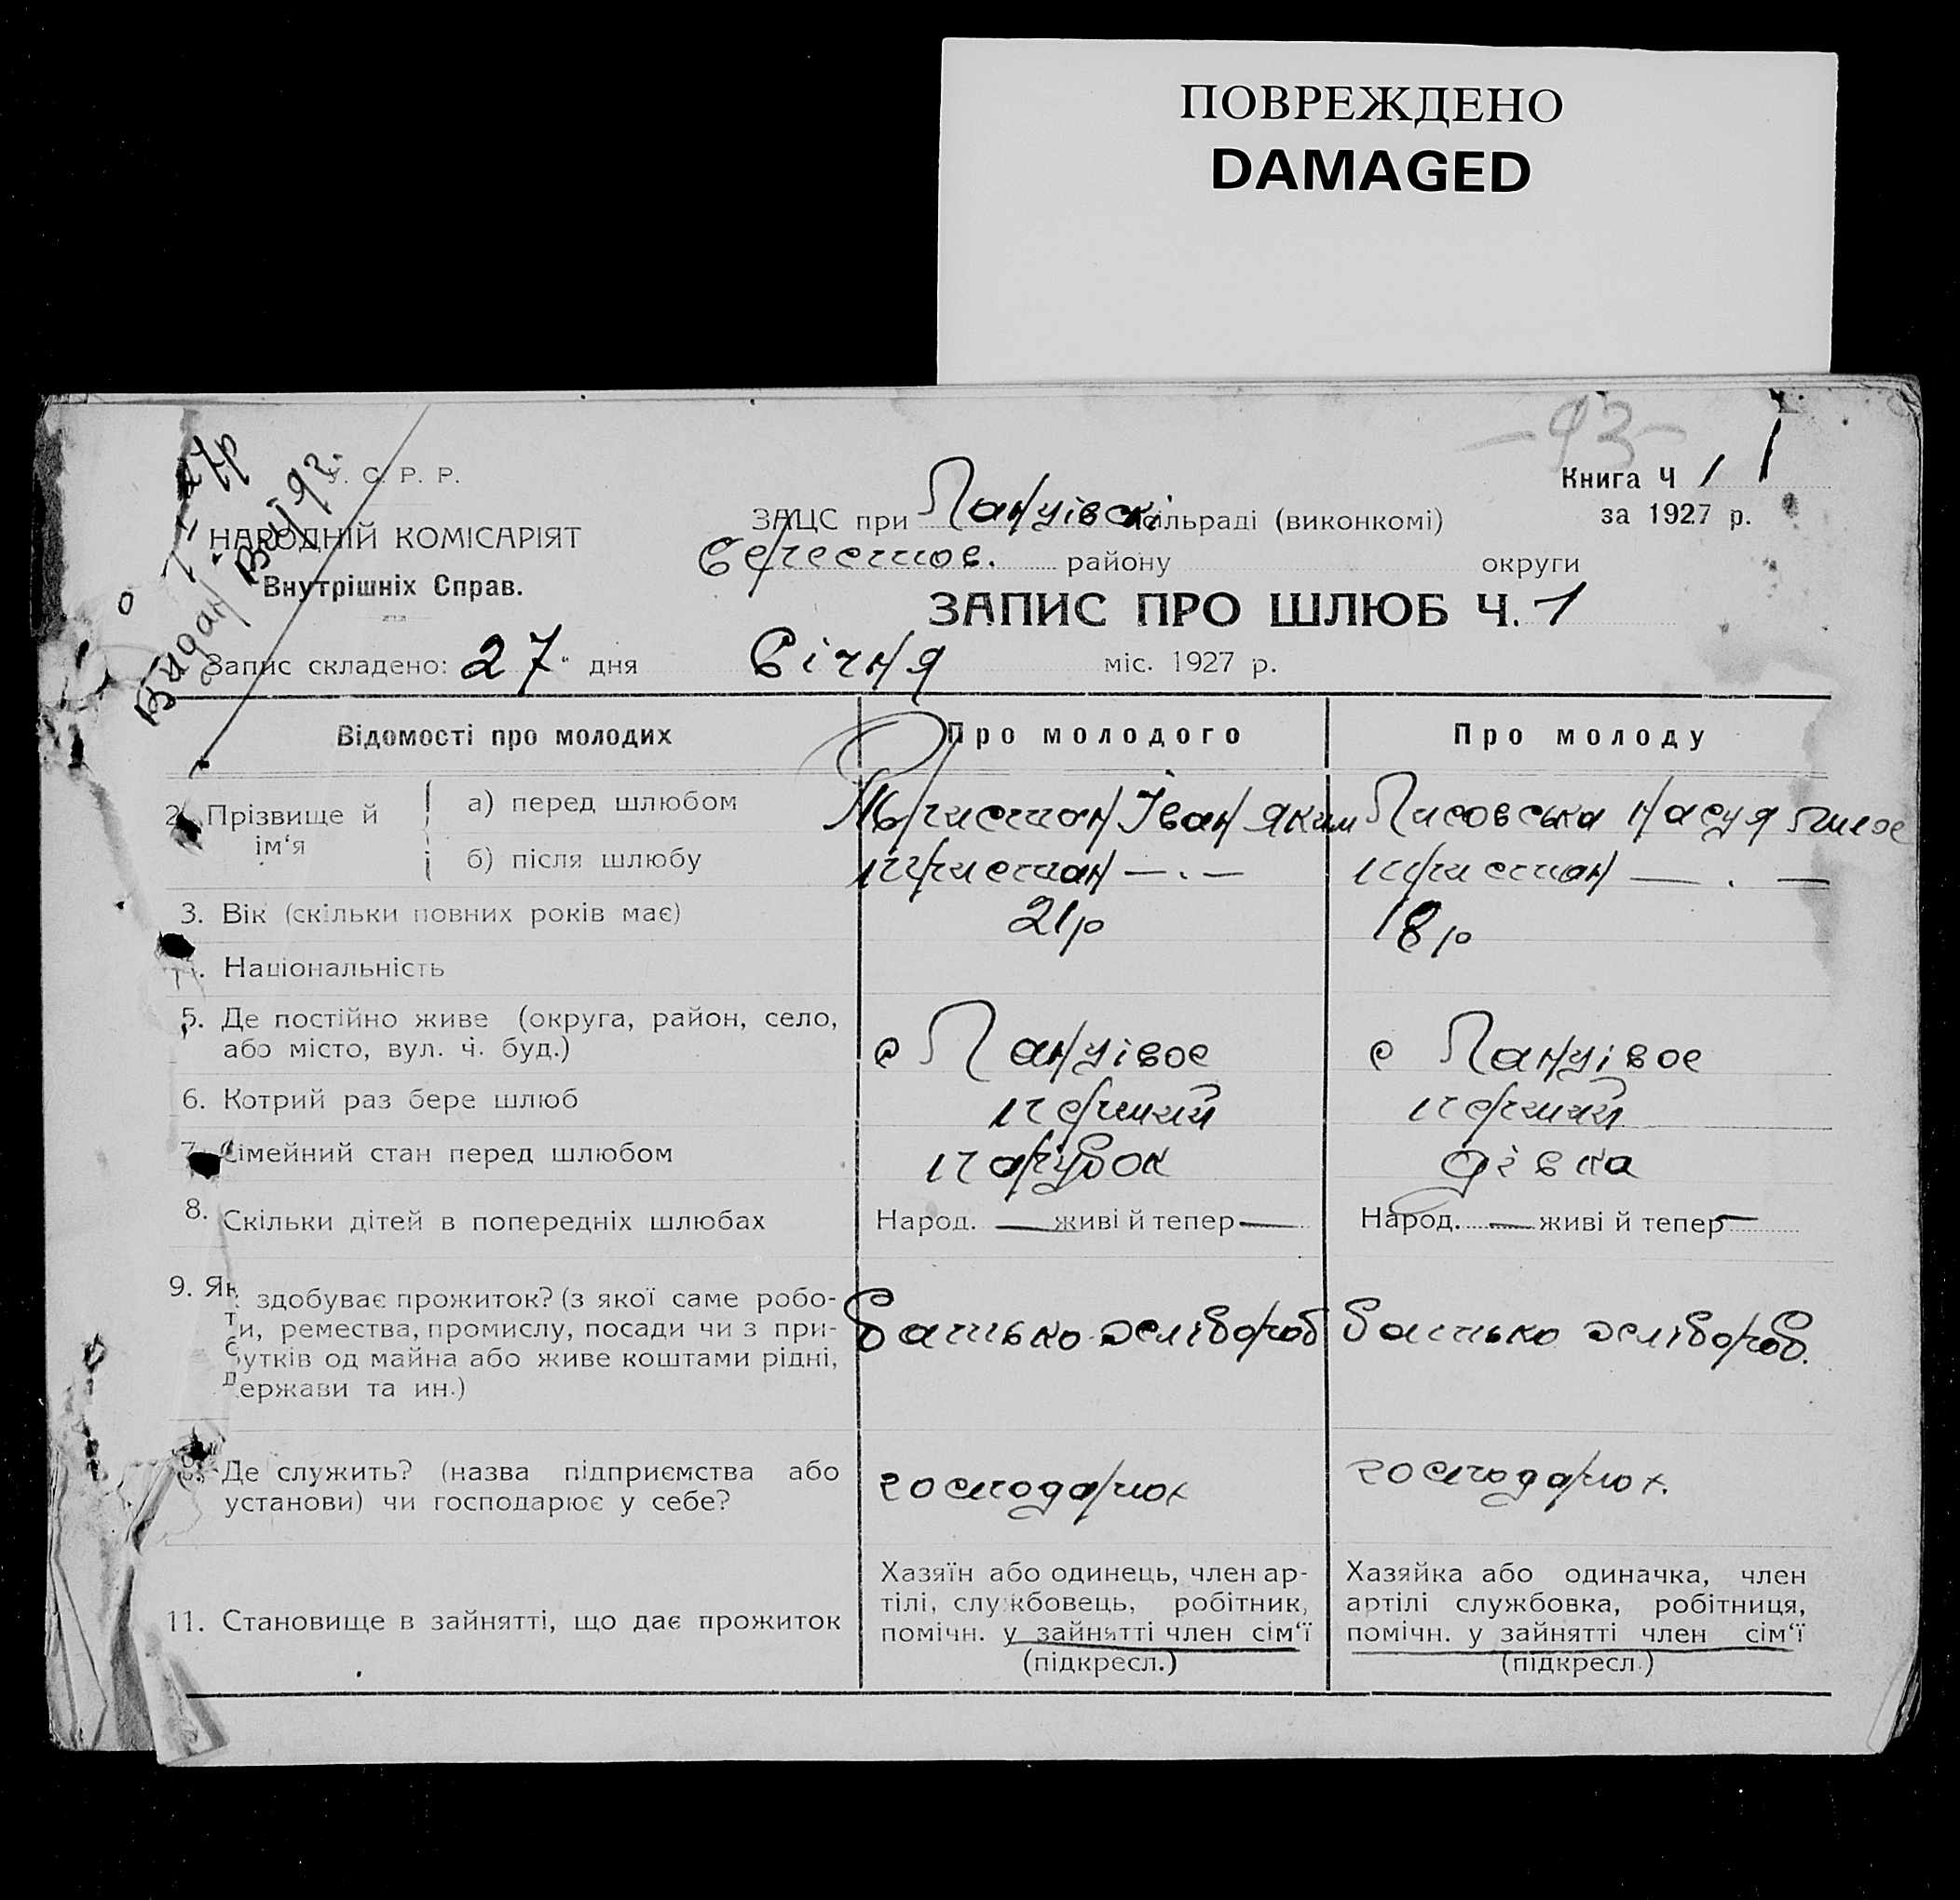 ПОВРЕЖДЕНО
DAMAGED
-93-
У. С. Р. Р.
НАРОДНІЙ КОМІСАРІЯТ
Внутрішніх Справ.
Видан витяг.
ЗАЦС при Ланцівскі сільраді (виконкомі)
району округи
Книга Ч 1 1
за 1927 р.
ЗАПИС ПРО ШЛЮБ Ч. 1
Запис складено: 27 дня Січня міс. 1927 р.
Відомості про молодих Про молодого Про молоду
2. Прізвище й ім‘я
а) перед шлюбом Іван Яким Лисовська
б) після шлюбу — . — — . —
3. Вік (скільки повних років має) 21р 18р
4. Національність
5. Де постійно живе (округа, район, село,
або місто, вул. ч. буд.) с Ланцівое с Ланцівое
6. Котрий раз бере шлюб перший перший
7. Сімейний стан перед шлюбом парубок дівка
8. Скільки дітей в попередніх шлюбах Народ. — живі й тепер — Народ. — живі й тепер —
9. Як здобуває прожиток? (з якої саме робо-
ти, ремества, промислу, посади чи з при-
бутків од майна або живе коштами рідні,
держави та ин.)
Батько хлібороб Батько хлібороб.
Де служить? (назва підприємства або
установи) чи господарює у себе?
господарюх господарюх.
11. Становище в зайнятті, що дає прожиток
Хазяїн або одинець, член ар-
тілі, службовець, робітник,
помічн. у зайнятті член сім‘ї
(підкресл.)
Хазяйка або одиначка, член
артілі службовка, робітниця,
помічн. у зайнятті член сім‘ї
(підкресл.)